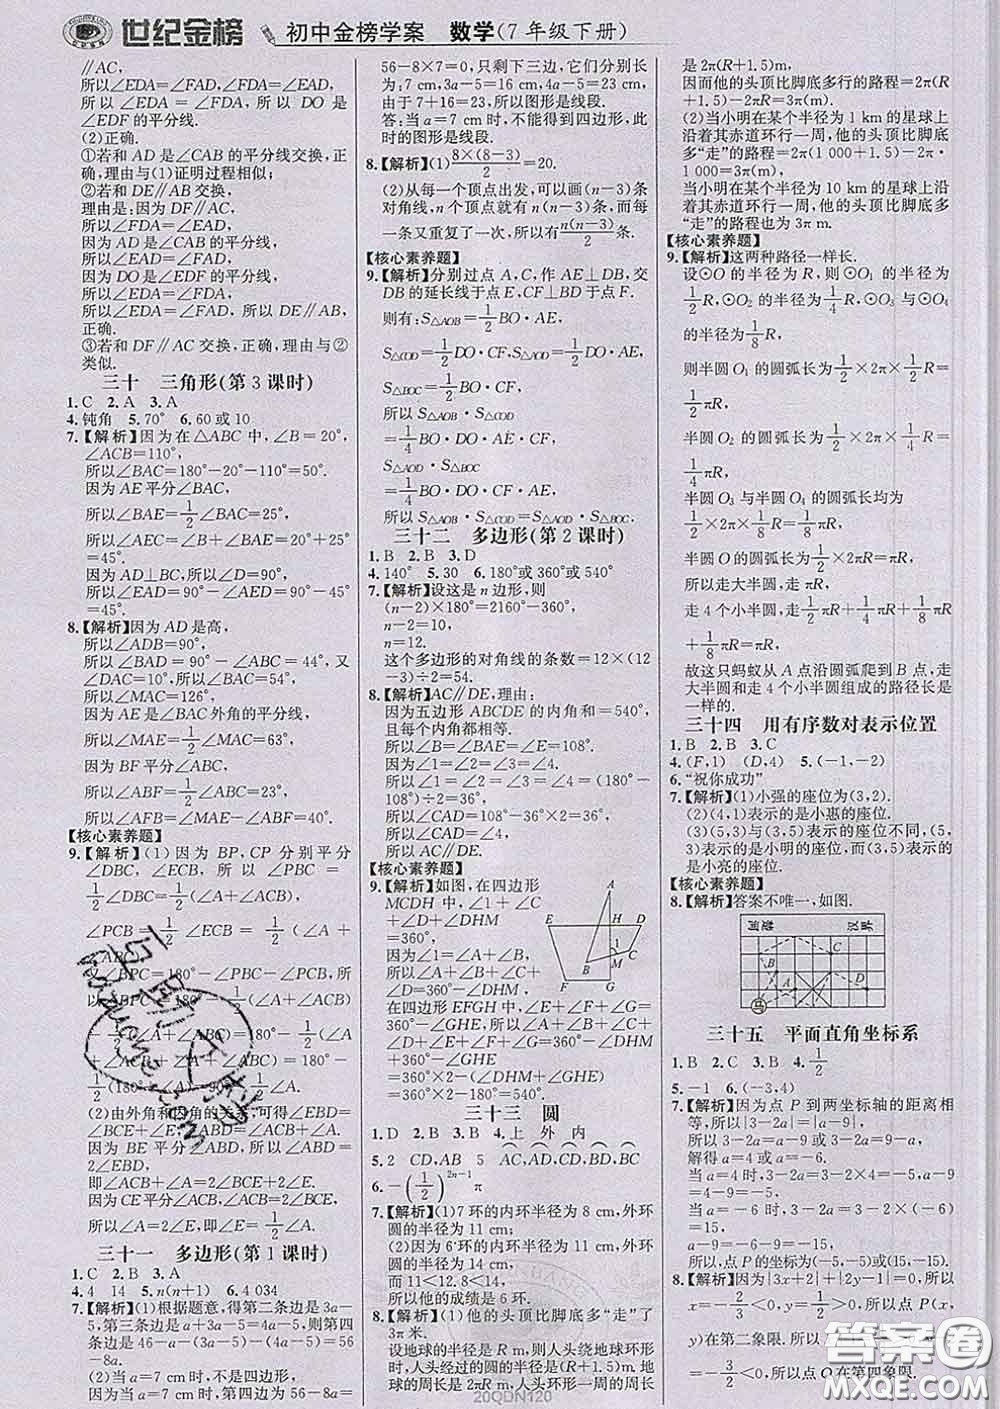 世纪金榜 初中金榜学案 数学(7年级下册)
∥AC,
所以∠EDA=∠FAD,∠FDA=∠EAD,
所以∠EDA=∠FDA,所以DO是
∠EDF的平分线.
(2)正确.
①若和AD是∠CAB的平分线交换,正
确,理由与(1)证明过程相似;
②若和DE∥AB交换,正确.
理由是:因为DF∥AC,
所以∠FDA=∠EAD,
因为AD是∠CAB的平分线,
所以∠EAD=∠FAD,
因为∠EDA=∠FDA,
所以∠EDA=∠FAD,所以DE∥AB,
正确.
③若和DF∥AC交换,正确,理由与②
类似.
三十 三角形(第3课时)
1.C 2.A 3.A
4.钝角 5.70° 6.60或10
7.【解析】因为在△ABC中,∠B=20°,
∠ACB=110°,
所以∠BAC=180°-20°-110°=50°.
因为AE平分∠BAC,
所以∠BAE=1/2∠BAC=25°,
所以∠AEC=∠B+∠BAE=20°+25°
=45°.
因为AD⊥BC,所以∠D=90°,
所以∠DAE=90°-∠AED=90°-45°
=45°.
8.【解析】因为AD是高,
所以∠ADB=90°,
所以∠BAD=90°-∠ABC=44°,又
∠DAC=10°,所以∠BAC=54°,
所以∠MAC=126°,
因为AE是∠BAC外角的平分线,
所以∠MAE=1/2∠MAC=63°,
因为BF平分∠ABC,
所以∠ABF=1/2∠ABC=23°,
所以∠AFB=∠MAE-∠ABF=40°.
【核心素养题】
9.【解析】(1)因为BP,CP分别平分
∠DBC,∠ECB,所以∠PBC=
1/2∠DBC=1/2(∠A+∠ACB),
∠PCB=1/2∠ECB=1/2(∠A+∠ABC),
∠BPC=180°-∠PBC-∠PCB,
(2)由外角和内角的关系,可得∠EBD=
∠EBC=∠BCE+∠E,∠ABD=
∠ABC=∠A+∠ACB.
因为BE平分∠ABD,所以∠ABD=
2∠EBD,
即∠A+∠ACB=2∠BCE+2∠E.
因为CE平分∠ACB,所以∠ACB=
2∠BCE,
所以∠A=2∠E,即∠E=1/2∠A.
三十一 多边形(第1课时)
1.C 2.B 3.A
4.4 14 5.n(n+1) 6.4 034
7.【解析】(1)根据题意,得第二条边是3a-
5,第三条边是a+3a-5=4a-5,则第四
条边是46-a-(3a-5)-(4a-5)=56
-8a.
(2)当a=7 cm时,不能得到四边形,
理由:因为当a=7 cm时,56-8a=
56-8×7=0,只剩下三边,它们分别长
为:7 cm,3a-5=16 cm,4a-5=23 cm,
由于7+16=23,所以图形是线段.
答:当a=7 cm时,不能得到四边形,此
时的图形是线段.
8.【解析】(1)8×(8-3)/2=20.
(2)从每一个顶点出发,可以画(n-3)条
对角线,n个顶点就有n(n-3)条,而每
一条又重复了一次,所以有n(n-3)/2条.
【核心素养题】
9.【解析】分别过点A,C,作AE⊥DB,交
DB的延长线于点E,CF⊥BD于点F.
则有:S△AOB=1/2BO·AE,
S△COD=1/2DO·CF,
S△AOD=1/2DO·AE,
S△BOC=1/2BO·CF,
所以S△AOB·S△COD
=1/4BO·DO·AE·CF,
S△AOD·S△BOC
=1/4BO·DO·AE·CF,
所以S△AOB·S△COD=S△AOD·S△BOC.
三十二 多边形(第2课时)
1.B 2.B 3.D
4.140° 5.30 6.180°或360°或540°
7.【解析】设这是n边形,则
(n-2)×180°=2160°-360°,
n-2=10,
n=12.
这个多边形的对角线的条数=12×(12
-3)÷2=54.
8.【解析】AC∥DE,理由:
因为五边形ABCDE的内角和=540°,
且每个内角都相等.
所以∠BAE=∠B=∠E=108°.
所以∠1=∠2=∠3=∠4=(180°-
108°)÷2=36°.
所以∠CAD=∠BAE-∠1-∠3=108°
-36°-36°=36°,
所以∠CAD=∠4,
所以AC∥DE.
【核心素养题】
9.【解析】如图,在四边形
MCDH中,
∠1+∠C+∠D+∠DHM
=360°,
因为∠1=∠A+∠B,
所以∠A+∠B+∠C+
∠D+∠DHM=360°,
即∠A+∠B+∠C+∠D
=360°-∠DHM.
在四边形EFGH中,∠E+∠F+∠G+
∠GHE=360°,所以∠E+∠F+∠G
=360°-∠GHE,
所以∠A+∠B+∠C+∠D+∠E+∠F
+∠G=360°-∠DHM+360°-∠GHE
=720°-(∠DHM+∠GHE)=720°-
180°=540°.
三十三 圆
1.D 2.B 3.B 4.上 外 内
5.2 CD,AB 5 AC,AD,CD,BD,BC
6.-(1/2)^(2n-1)π
7.【解析】(1)7环的内环半径为8 cm,外环
圆的半径为11 cm;
(2)因为6环的内环半径为11 cm,外环
圆的半径为14 cm,
而11<12.8<14,
所以他的成绩是6环.
8.【解析】(1)他的头顶比脚底多“走”了
3π米.
设地球的半径是R m,人头绕地球环形
时,人头经过的圆的半径是(R+1.5)m.地
球的周长是2πR m,人头环形一周的周长
是2π(R+1.5)m.
因而他的头顶比脚底多行的路程=2π(R
+1.5)-2πR=3π(m).
(2)当小明在某个半径为1 km的星球上
沿着其赤道环行一周,他的头顶比脚底
多“走”的路程=2π(1 000+1.5)-2π
·1 000=3π(m).
当小明在某个半径为10 km的星球上沿
着其赤道环行一周,他的头顶比脚底多
“走”的路程也为3π m.
【核心素养题】
9.【解析】这两种路径一样长.
设⊙O的半径为R,则⊙O₁的半径为
1/2R,⊙O₂的半径为1/4R,⊙O₃与⊙O₄
的半径为1/8R,
则半圆O₁的圆弧长为1/2×2π×1/2R=
1/2πR,
半圆O₂的圆弧长为1/2×2π×1/4R=
1/4πR,
半圆O₃与半圆O₄的圆弧长均为
1/2×2π×1/8R=1/8πR,
半圆O的圆弧长为1/2×2πR=πR,
所以走大半圆,走πR,
走4个小半圆,走1/2πR+1/4πR+1/8πR
+1/8πR=πR,
故这只蚂蚁从A点沿圆弧爬到B点,走
大半圆和走4个小半圆组成的路径长是
一样的.
三十四 用有序数对表示位置
1.B 2.B 3.C
4.(F,1) (D,4) 5.(-1,-2)
6.“祝你成功”
7.【解析】(1)小强的座位为(3,2).
(2)(4,1)表示的是小惠的座位.
(3)(5,3)与(3,5)表示的座位不同,(5,
3)表示的是小明的座位,而(3,5)表示的
是小亮的座位.
【核心素养题】
8.【解析】答案不唯一,如图.
三十五 平面直角坐标系
1.B 2.C 3.B 4.1/2
5.-1 6.(-3,4)
7.【解析】因为点P到两坐标轴的距离相
等,所以|3-2a|=|a-9|,
所以3-2a=a-9或3-2a=9-a,
解得a=4或a=-6.
当a=4时,3-2a=3-2×4=-5,
a-9=4-9=-5;
当a=-6时,3-2a=3-2×(-6)
=15,
a-9=-6-9=-15.
所以,点P的坐标为(-5,-5)或(15,-15).
8.【解析】因为|3x+2|+|2y-1|=0,所以
x=-2/3<0,y=1/2>0,所以点P(x,
y)在第二象限.
20QDN120
答案圈
MXQE.COM